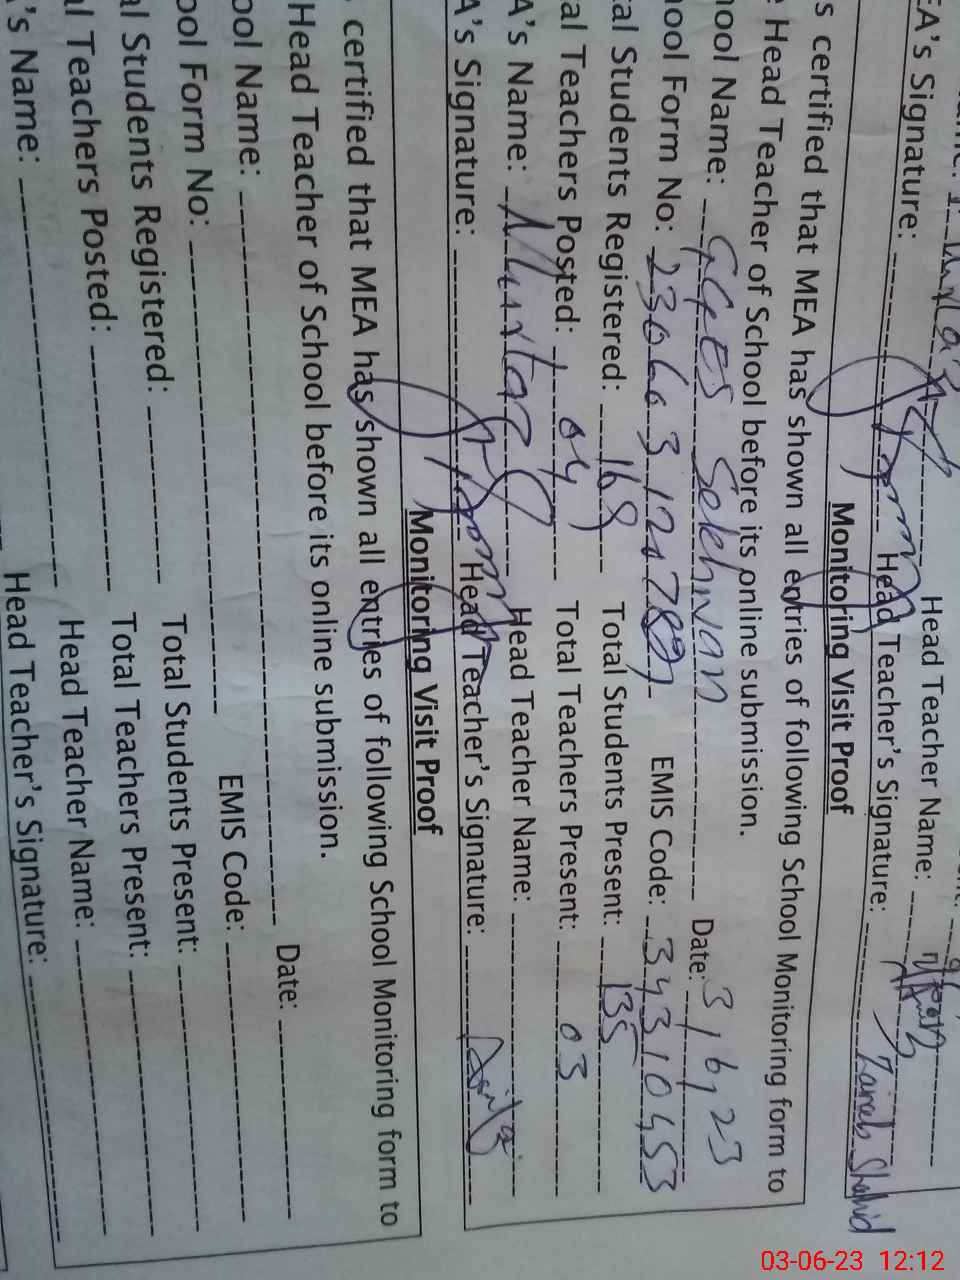 EA's Signature:
Head Teacher Name:
Head Teacher's Signature: Zainab Shahid
Monitoring Visit Proof
s certified that MEA has shown all entries of following School Monitoring form to
e Head Teacher of School before its online submission.
hool Name: GGES Sekhwan Date: 3/6/23
hool Form No: EMIS Code: 34310453
tal Students Registered: 169 Total Students Present: 135
al Teachers Posted: 04 Total Teachers Present: 03
A's Name: Mushtaq Head Teacher Name:
A's Signature: Head Teacher's Signature:
Monitoring Visit Proof
certified that MEA has shown all entries of following School Monitoring form to
Head Teacher of School before its online submission.
ool Name: Date:
ool Form No: EMIS Code:
al Students Registered: Total Students Present:
al Teachers Posted: Total Teachers Present:
A's Name: Head Teacher Name:
Head Teacher's Signature:
03-06-23 12:12